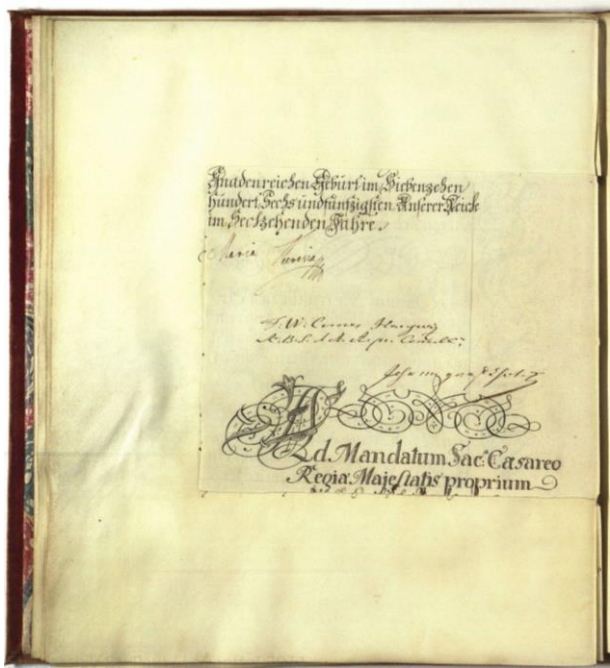 Gnadenreichen Geburt im Siebenzehen
hundert Sechs und fünfzigsten Unserer Reich
im Sechzehenden Jahre.
Maria Theresia
F. W. Comes Haugwiz
Johann graf Chotek
Ad Mandatum Sac: Cæsareo
Regiæ Majestatis proprium